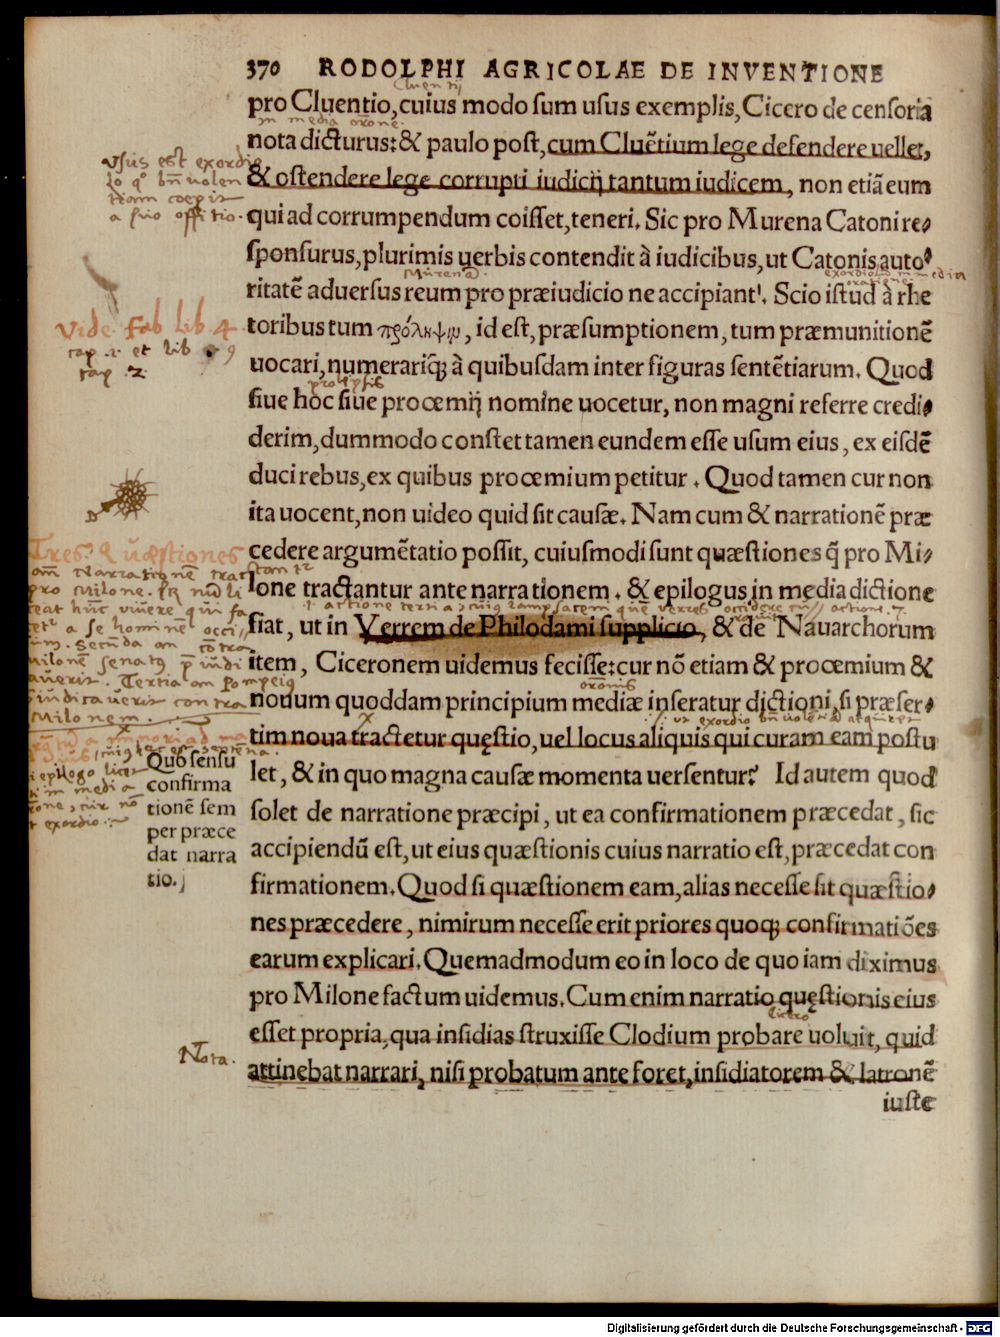 370 RODOLPHI AGRICOLAE DE INVENTIONE
pro Cluentio, cuius modo sum usus exemplis, Cicero de censoria
nota dicturus: & paulo post, cum Cluẽtium lege defendere uellet,
& ostendere lege corrupti iudicij tantum iudicem, non etiã eum
qui ad corrumpendum coisset, teneri. Sic pro Murena Catoni re-
sponsurus, plurimis uerbis contendit à iudicibus, ut Catonis auto-
ritatẽ aduersus reum pro præiudicio ne accipiant'. Scio istud à rhe
toribus tum πρόληψιν, id est, præsumptionem, tum præmunitionẽ
uocari, numerariq; à quibusdam inter figuras sentẽtiarum. Quod
siue hoc siue procemij nomine uocetur, non magni referre credi-
derim, dummodo constet tamen eundem esse usum eius, ex eisdẽ
duci rebus, ex quibus procemium petitur. Quod tamen cur non
ita uocent, non uideo quid sit causæ. Nam cum & narrationẽ præ
cedere argumẽtatio possit, cuiusmodi sunt quæstiones q̃ pro Mi-
lone tractantur ante narrationem. & epilogus in media dictione
fiat, ut in Verrem de Philodami supplicio, & de Nauarchorum
item, Ciceronem uidemus fecisse: cur nõ etiam & procemium &
nouum quoddam principium mediæ inseratur dictioni, si præser-
tim noua tractetur quęstio, uel locus aliquis qui curam eam postu
let, & in quo magna causæ momenta uersentur? Id autem quod
solet de narratione præcipi, ut ea confirmationem præcedat, sic
accipiendũ est, ut eius quæstionis cuius narratio est, præcedat con
firmationem. Quod si quæstionem eam, alias necesse sit quæstio-
nes præcedere, nimirum necesse erit priores quoq; confirmatiões
earum explicari. Quemadmodum eo in loco de quo iam diximus
pro Milone factum uidemus. Cum enim narratio quęstionis eius
esset propria, qua insidias struxisse Clodium probare uoluit, quid
attinebat narrari, nisi probatum ante foret, insidiatorem & latronẽ
iuste
Quo sensu
confirma
tionẽ sem
per præce
dat narra
tio.
Vsus est exordio
Vide Fab lib 4
cap. 1. et lib 9
cap. 2
Tres Quæstiones
pro Milone.
Milonem.
Nota.
Murena
Cicero
Digitalisierung gefördert durch die Deutsche Forschungsgemeinschaft - DFG